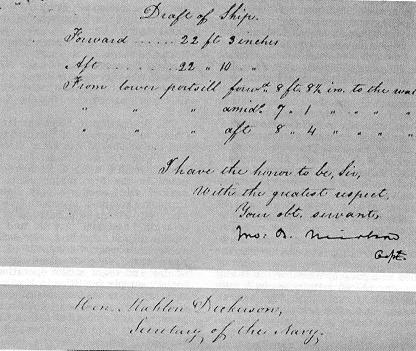 Draft of Ship.
Forward ...... 22 ft 3 inches
Aft ........ 22 " 10 "
From lower portsill forwd. 8 ft. 8½ in. to the wat
" " " amids. 7 " 1 " " " "
" " " aft 8 " 4 " " " "
I have the honor to be, Sir,
With the greatest respect,
Your obt. servant,
Jno: B. Nicolson
Capt.
Hon. Mahlon Dickerson,
Secretary of the Navy.